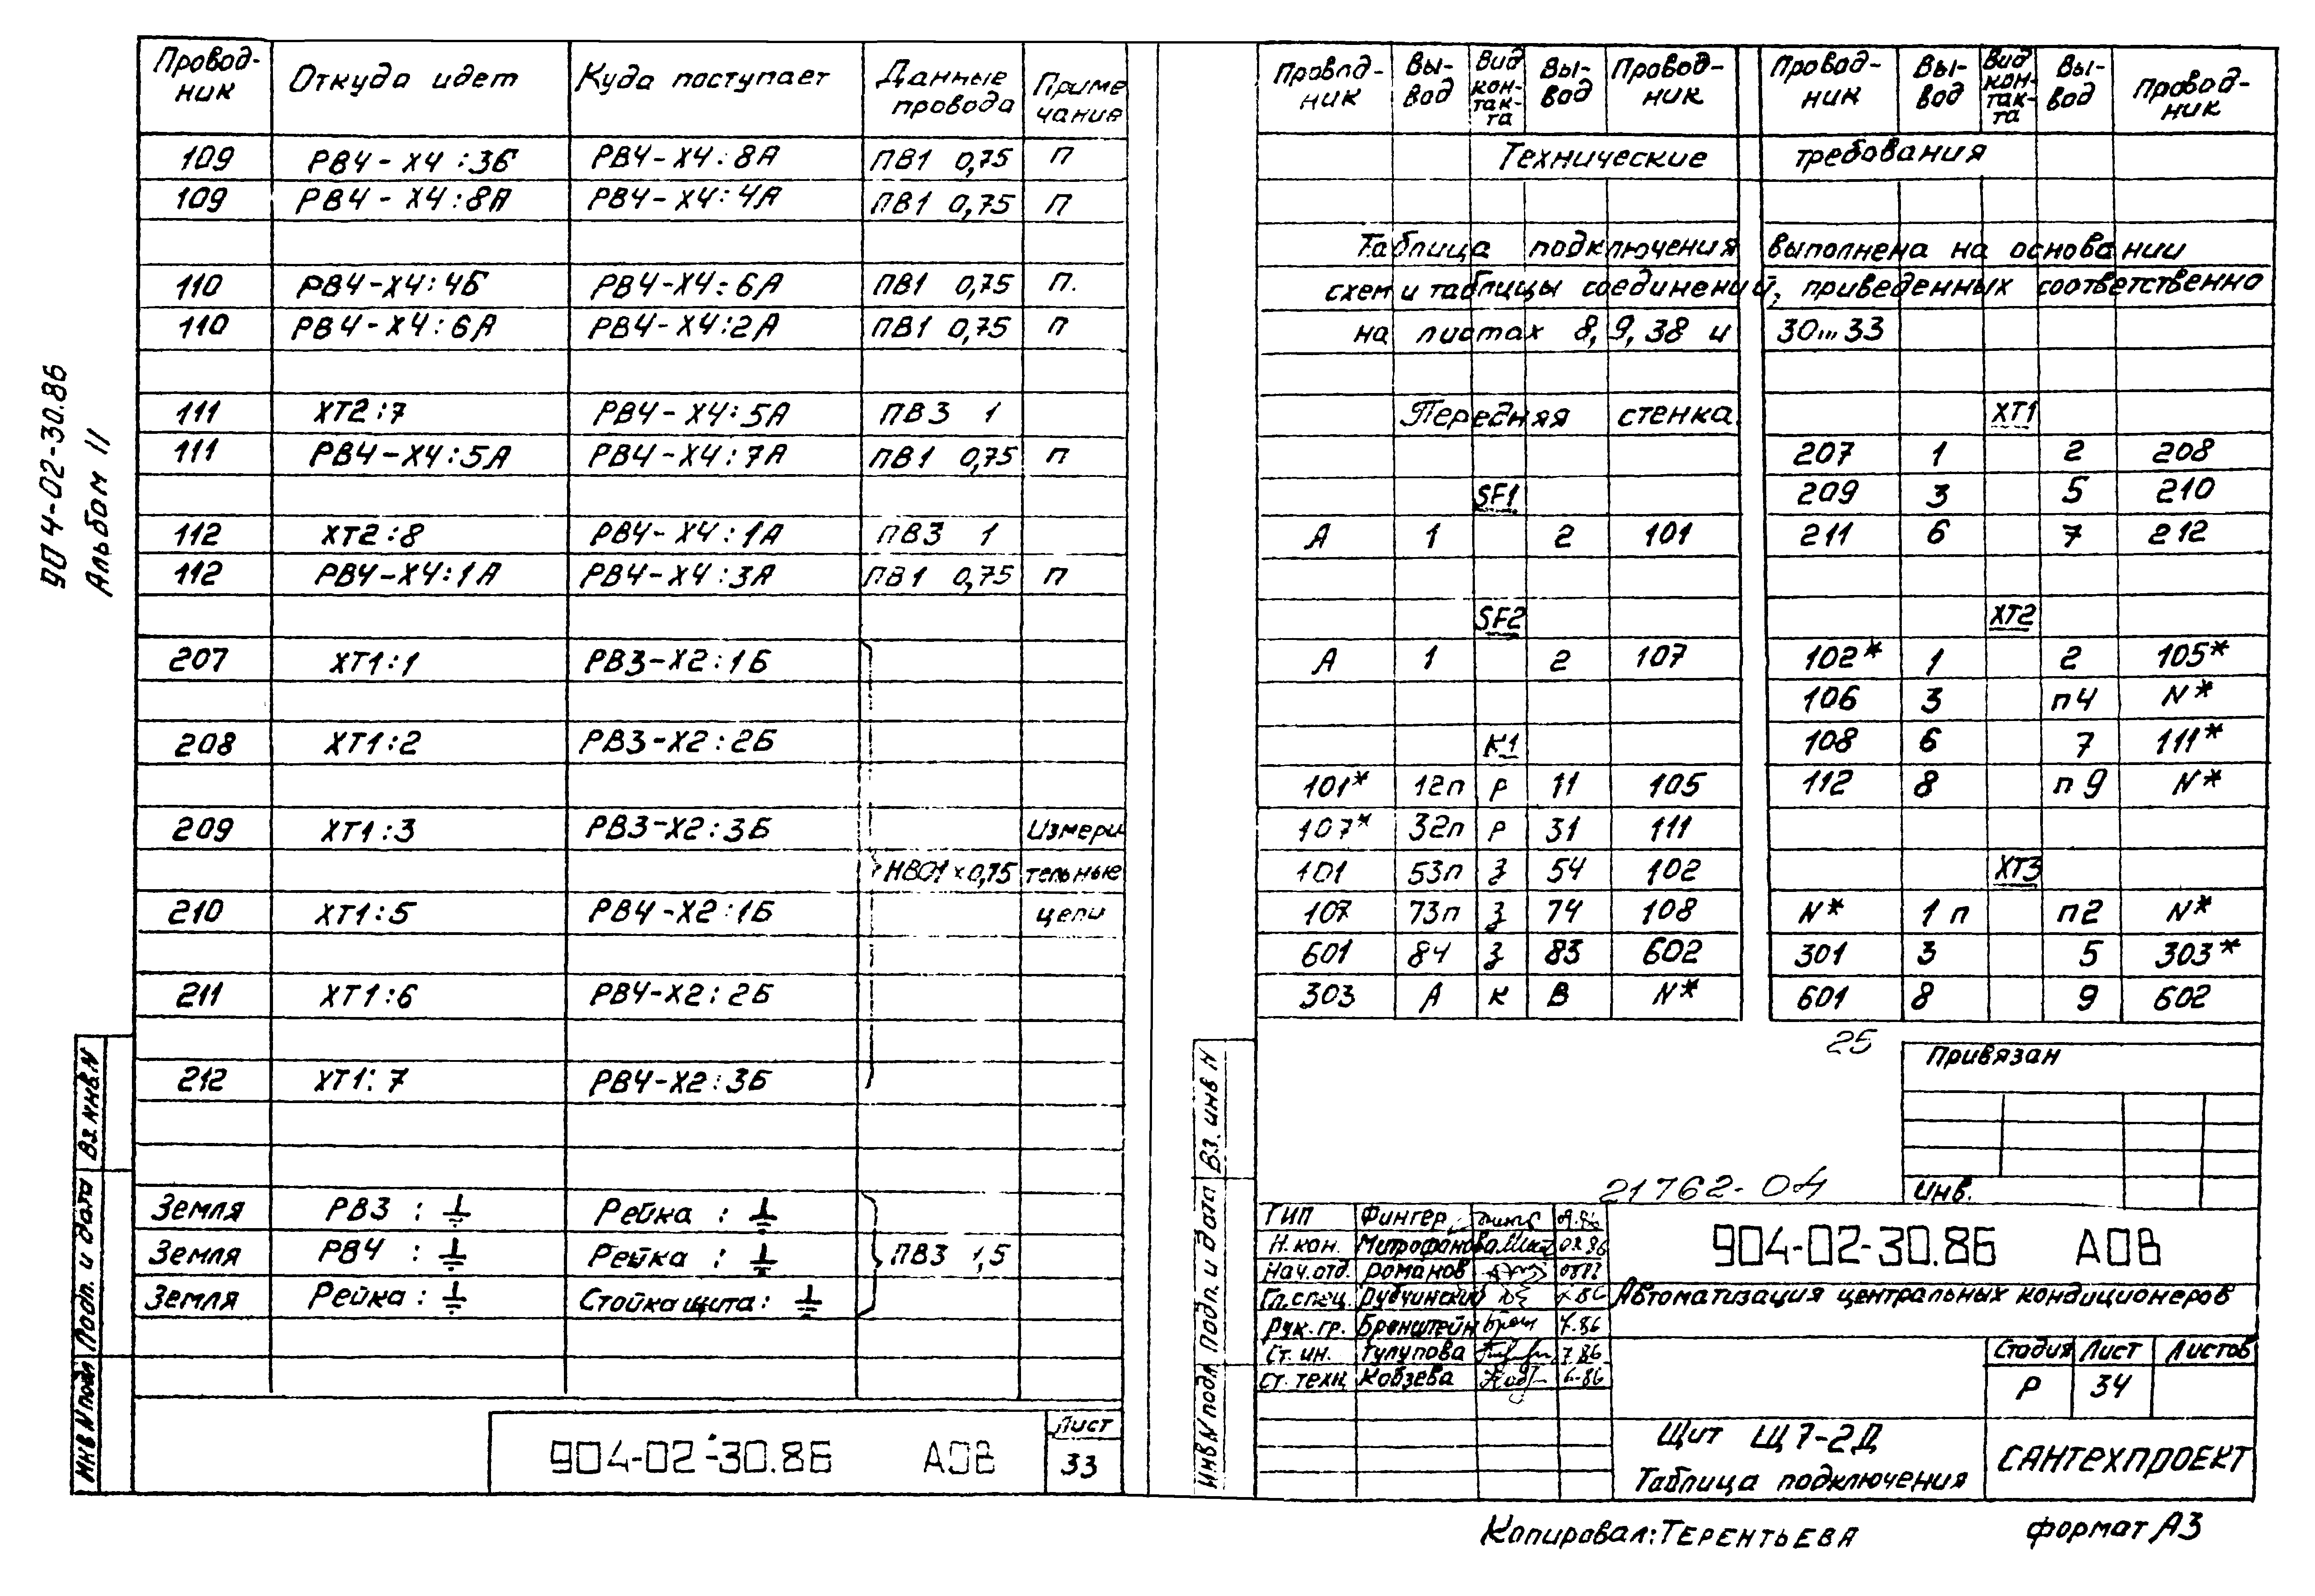 904-02-30.86
Альбом II
Провод- ник Откуда идет Куда поступает Данные провода Приме чание
109 РВ4-Х4:3Б РВ4-Х4:8А ПВ1 0,75 П
109 РВ4-Х4:8А РВ4-Х4:4А ПВ1 0,75 П
110 РВ4-Х4:4Б РВ4-Х4:6А ПВ1 0,75 П.
110 РВ4-Х4:6А РВ4-Х4:2А ПВ1 0,75 П
111 ХТ2:7 РВ4-Х4:5А ПВ3 1
111 РВ4-Х4:5А РВ4-Х4:7А ПВ1 0,75 П
112 ХТ2:8 РВ4-Х4:1А ПВ3 1
112 РВ4-Х4:1А РВ4-Х4:3А ПВ1 0,75 П
207 ХТ1:1 РВ3-Х2:1Б
208 ХТ1:2 РВ3-Х2:2Б
209 ХТ1:3 РВ3-Х2:3Б Измери
НВ01×0,75 тельные
210 ХТ1:5 РВ4-Х2:1Б цепи
211 ХТ1:6 РВ4-Х2:2Б
212 ХТ1:7 РВ4-Х2:3Б
Земля РВ3 : ⏚ Рейка : ⏚
Земля РВ4 : ⏚ Рейка : ⏚ ПВ3 1,5
Земля Рейка : ⏚ Стойка щита: ⏚
904-02-30.86 АОВ
Лист
33
Инв N подл Подп. и дата Вз. инв. N
Провод- ник Вы- вод Вид кон- так- та Вы- вод Провод- ник Провод- ник Вы- вод Вид кон- так- та Вы- вод Провод- ник
Технические требования
Таблица подключения выполнена на основании
схем и таблицы соединений, приведенных соответственно
на листах 8, 9, 38 и 30...33
Передняя стенка ХТ1
207 1 2 208
SF1 209 3 5 210
А 1 2 101 211 6 7 212
SF2 ХТ2
А 1 2 107 102* 1 2 105*
106 3 п4 N*
К1 108 6 7 111*
101* 12п р 11 105 112 8 п9 N*
107* 32п р 31 111
101 53п з 54 102 ХТ3
107 73п з 74 108 N* 1п п2 N*
601 84 з 83 602 301 3 5 303*
303 А к В N* 601 8 9 602
25
Привязан
Инв.
21762-04
Инв N подл Подп. и дата Вз. инв N
ГИП Фингер 09.86
Н. кон. Митрофанова 08.86
Нач. отд. Романов
Гл. спец. Рубчинский
Рук. гр. Бронштейн 7.86
Ст. ин. Тулупова 7.86
Ст. техн Кобзева 6-86
904-02-30.86 АОВ
Автоматизация центральных кондиционеров
Стадия Лист Листов
Р 34
Щит Щ7-2Д
Таблица подключения
САНТЕХПРОЕКТ
Копировал: ТЕРЕНТЬЕВА
формат А3